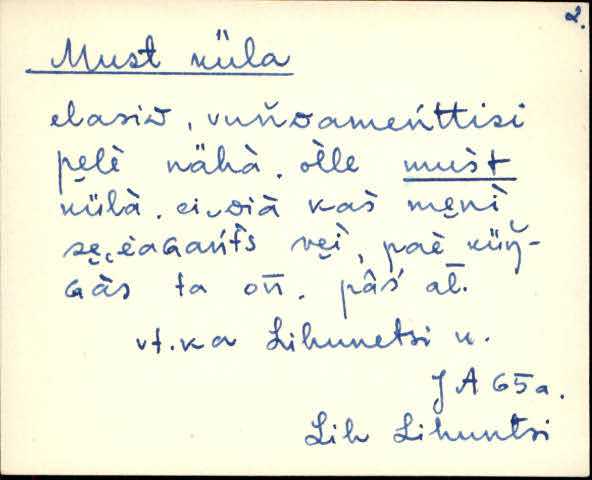 2.
Must küla
elasiᴅ, vuňᴅameńttisi
pe̮lè nähà. òlle mušt
külà. ei‿ᴅià kas̀ me̮nì
se̮‿èaɢańt̀s ve̮ì, paè küŋ-
ɢàs ta oн̄. pâś al̄.
vt. ka Lihunetsi k.
JA 65a.
Lih Lihuntsi